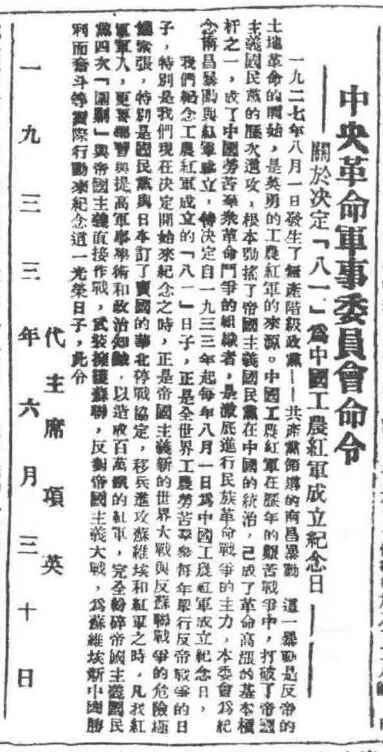 中央革命軍事委員會命令
——關於決定「八一」爲中國工農紅軍成立紀念日——
一九二七年八月一日發生了無產階級政黨——共產黨領導的南昌暴動 這一暴動是反帝的
土地革命的開始，是英勇的工農紅軍的來源。中國工農紅軍在歷年的艱苦戰爭中，打破了帝國
主義國民黨的歷次進攻，根本動搖了帝國主義國民黨在中國的統治，已成了革命高漲的基本槓
杆之一，成了中國勞苦羣衆革命鬥爭的組織者，是澈底進行民族革命戰爭的主力，本委會爲紀
念南昌暴動與紅軍成立，特決定自一九三三年起每年八月一日爲中國工農紅軍成立紀念日，
我們紀念工農紅軍成立的「八一」日子，正是全世界工農勞苦羣衆每年舉行反帝戰爭的日
子，特別是我們現在決定開始來紀念之時，正是帝國主義新的世界大戰與反蘇聯戰爭的危險極
端緊張，特別是國民黨與日本訂了賣國的華北停戰協定，移兵進攻蘇維埃和紅軍之時，凡我紅
軍軍人，更要學習與提高軍事學術和政治知識，以造成百萬鐵的紅軍，完全粉碎帝國主義國民
黨四次「圍剿」與帝國主義直接作戰，武裝擁護蘇聯，反對帝國主義大戰，爲蘇維埃新中國勝
利而奮斗等實際行動來紀念這一光榮日子，此令
代主席 項英
一九三三年六月三十日